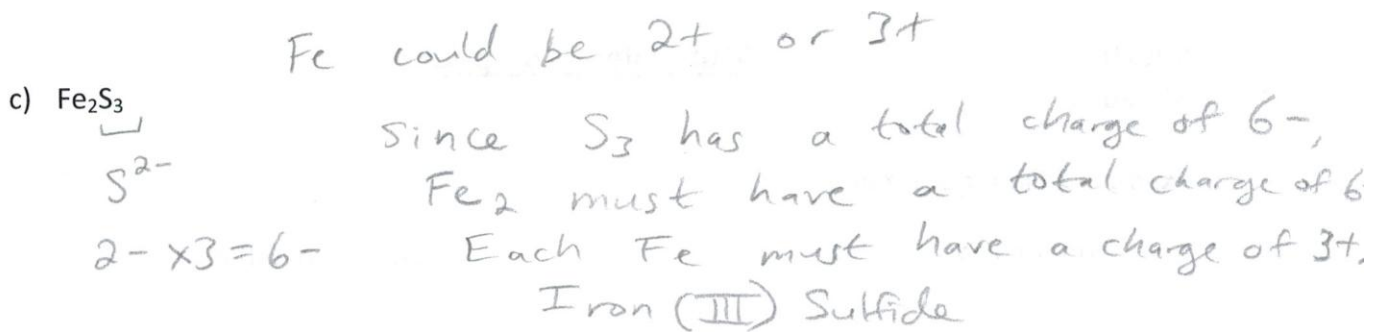 Fe could be 2+ or 3+
c) Fe₂S₃
Since S₃ has a total charge of 6-,
S²⁻
Fe₂ must have a total charge of 6
2- x3 = 6-
Each Fe must have a charge of 3+.
Iron (III) Sulfide